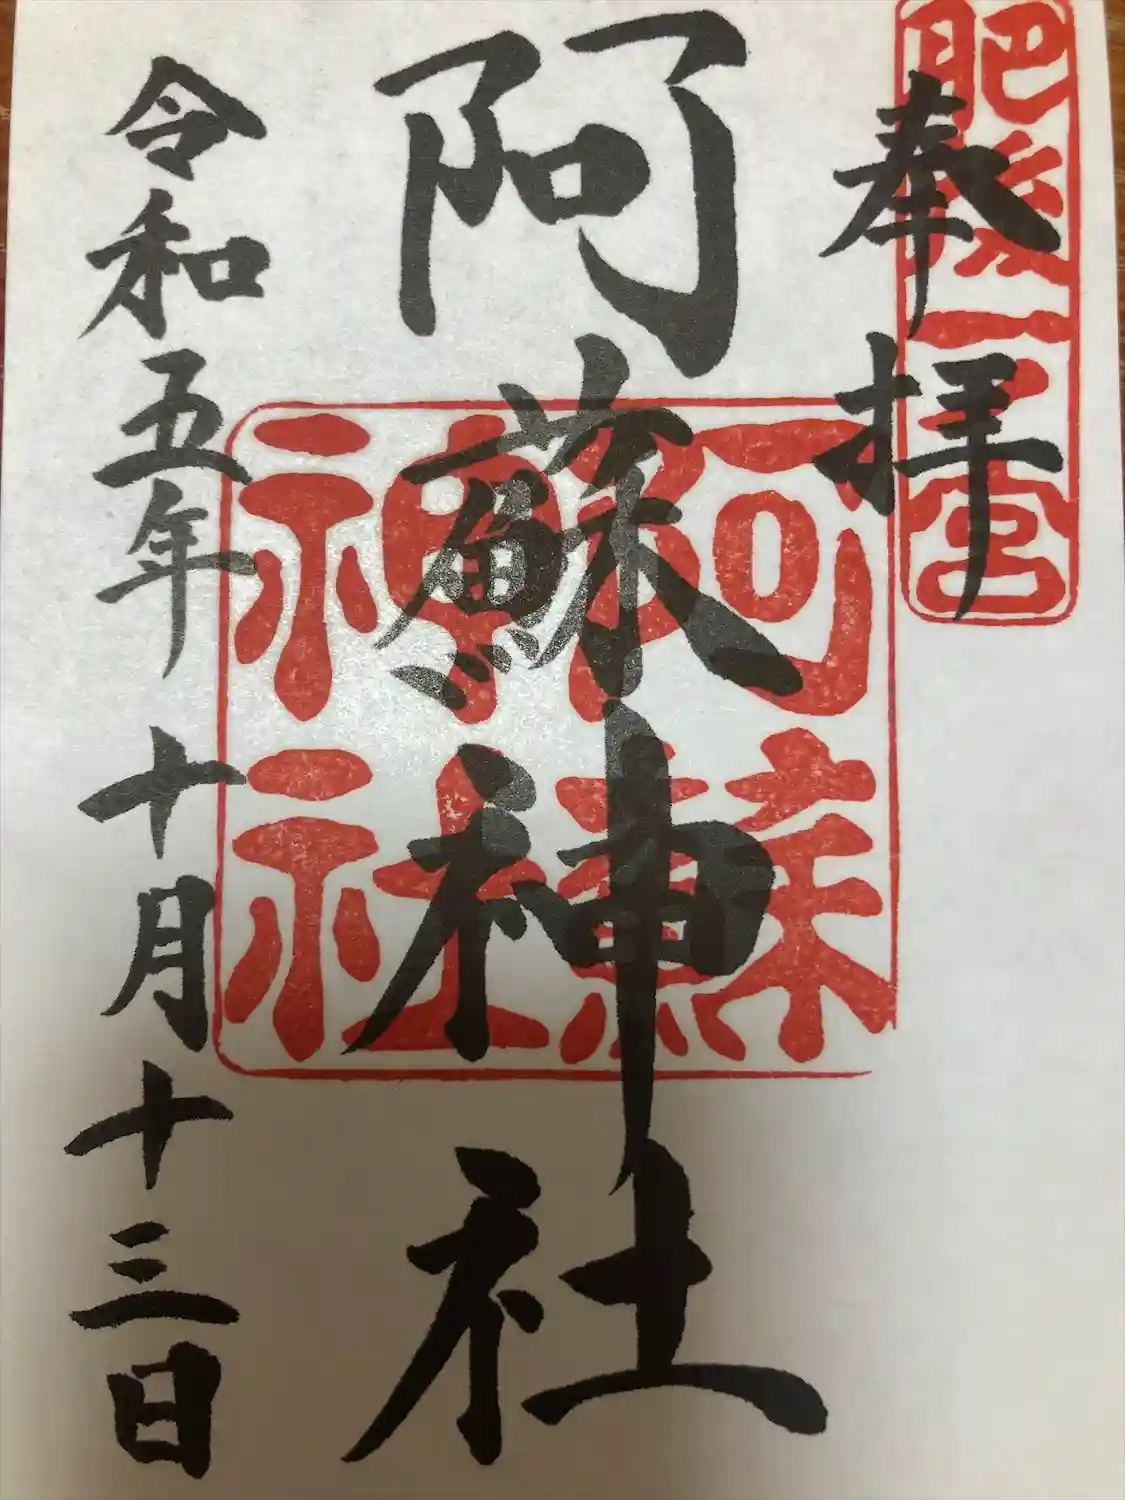 肥後一之宮
奉拝
阿蘇神社
阿蘇神社
令和五年十月十三日